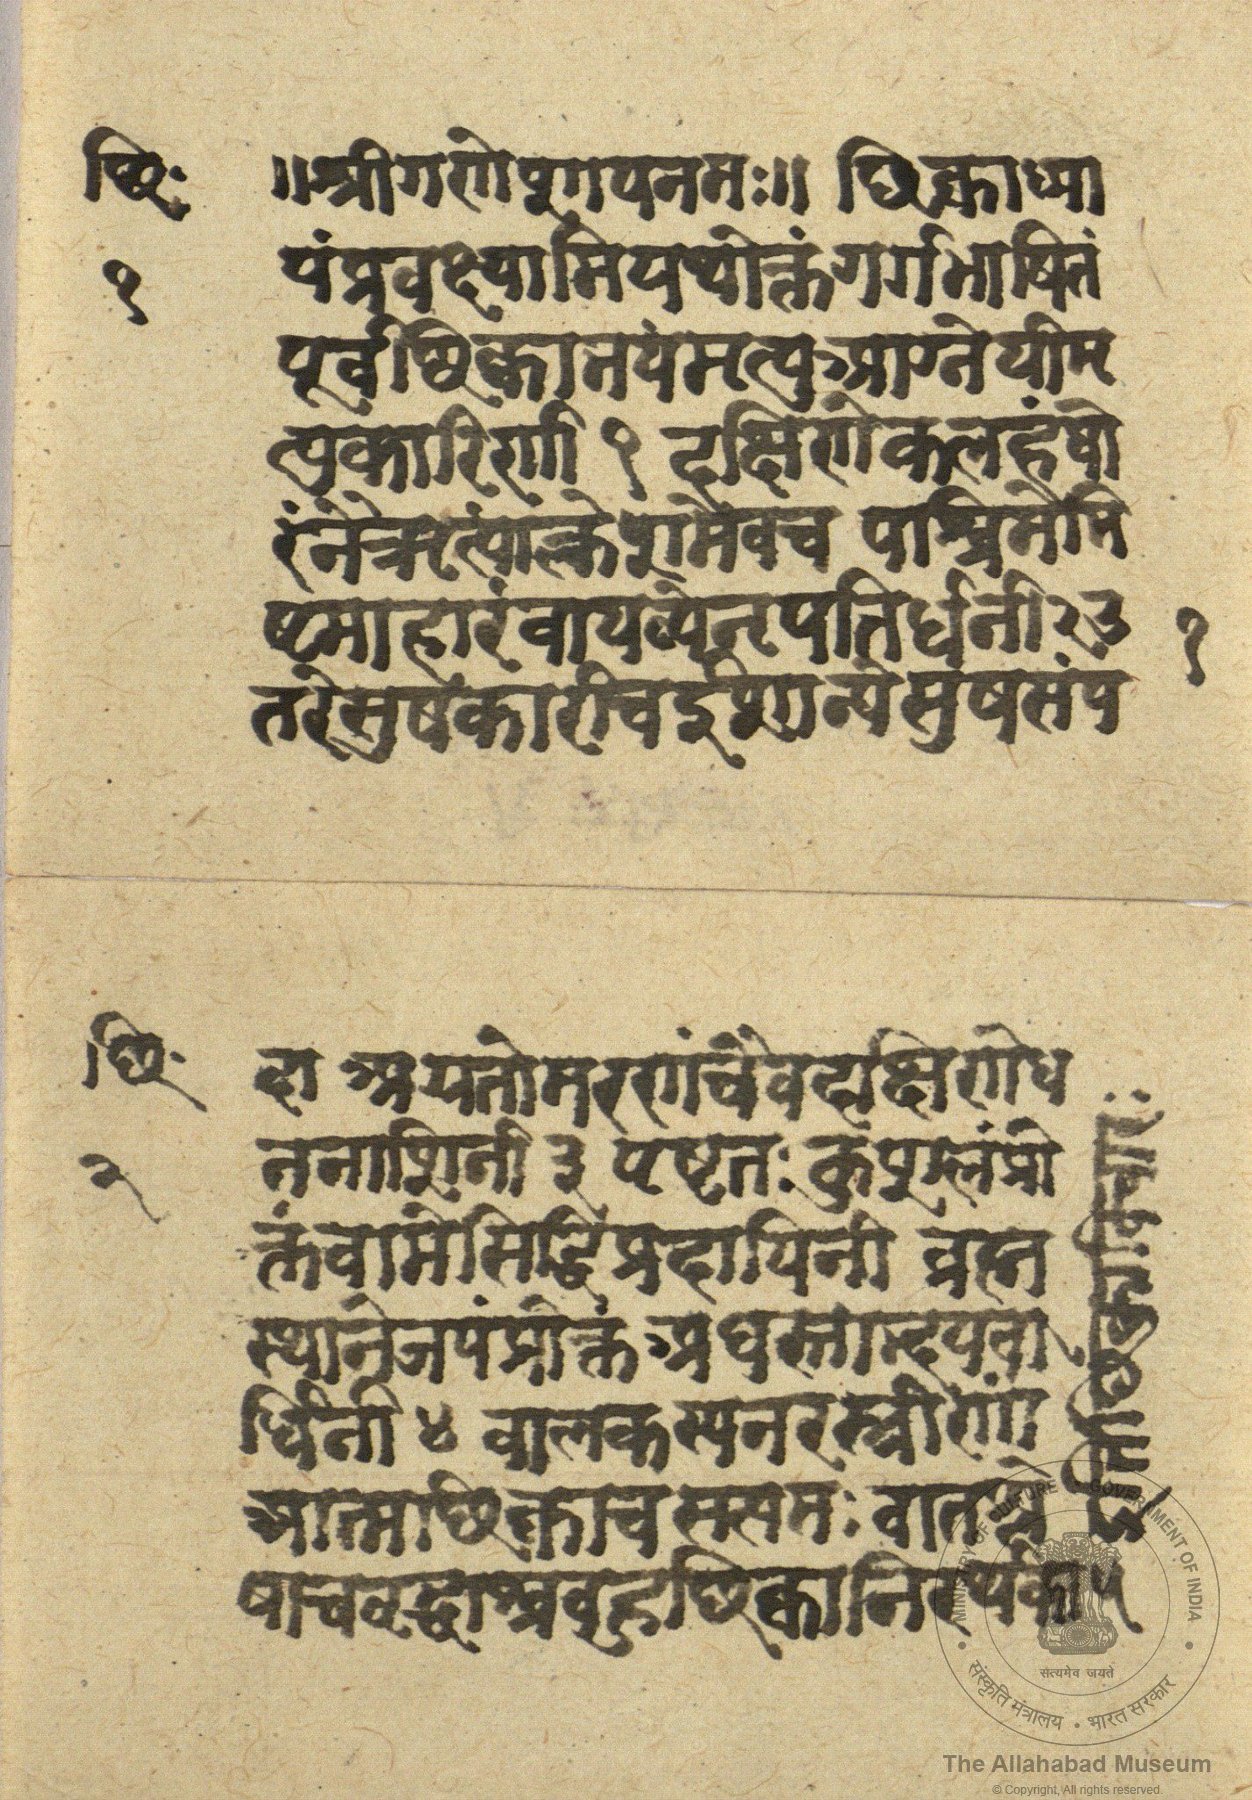 छिः
१
॥श्रीगणेशायनमः॥ छिक्काध्या
यंप्रवक्ष्यामियथोक्तंगर्गभाषितं
पूर्वछिक्कानयंमत्युआग्नेयीम
त्युकारिणी १ दक्षिणेकलहंघो
रंनैऋत्यांल्केशमेवच पश्चिमेमि
ष्टमाहारंवायव्येनृपतिर्धनी २ उ
तरेसुषंकारीचईशान्येसुषसंप
१
छि
२
दा अग्रतोमरणंचैवदाक्षिणेध
ननाशिनी ३ पृष्टतःकुशलंप्रो
क्तंवामेसिद्धिप्रदायिनी ब्रह्म
स्थानेजयंप्रोक्तंअधस्ता
र्धिनी ४ वालकस्यनरस्त्रीणां
आत्मछिक्काच वातश्ले
षाचवद्धाश्चवृहछिक्कानिरर्थका ५
MINISTRY OF CULTURE • GOVERNMENT OF INDIA
सत्यमेव जयते
संस्कृति मंत्रालय • भारत सरकार
The Allahabad Museum
© Copyright, All rights reserved.